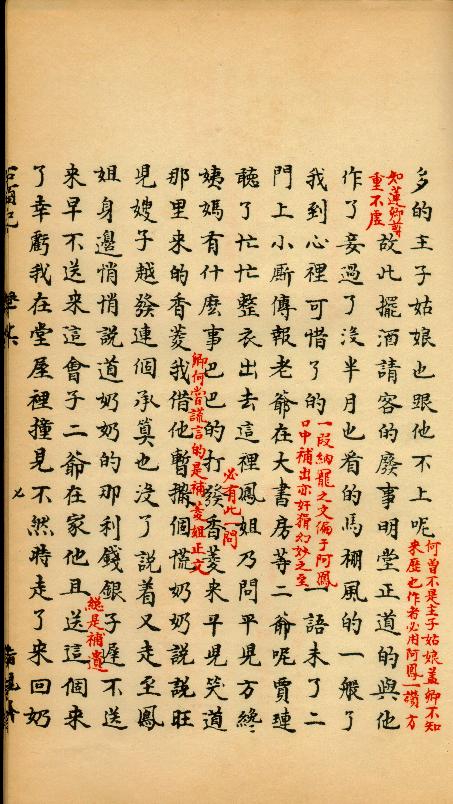 多的主子姑娘也跟他不上呢
何曾不是主子姑娘蓋卿不知
來歷也作者必用阿鳳一讚方
知蓮卿尊
重不虛
故此擺酒請客的廢事明堂正道的與他
作了妾過了沒半月也看的馬棚風的一般了
我到心裡可惜了的
一段納寵之文偏于阿鳳
口中補出亦奸猾幻妙之至
一語未了二
門上小廝傳報老爺在大書房等二爺呢賈璉
聽了忙忙整衣出去這裡鳳姐乃問平兒方纔
姨媽有什麼事巴巴的打發香菱來平兒笑道
必有此一問
那里來的香菱我借他暫撒個慌奶奶說說旺
卿何嘗謊言的是補菱姐正文
兒嫂子越發連個承算也沒了說着又走至鳳
姐身邊悄悄說道奶奶的那利錢銀子遲不送
總是補遺
來早不送來這會子二爺在家他且送這個來
了幸虧我在堂屋裡撞見不然時走了來回奶